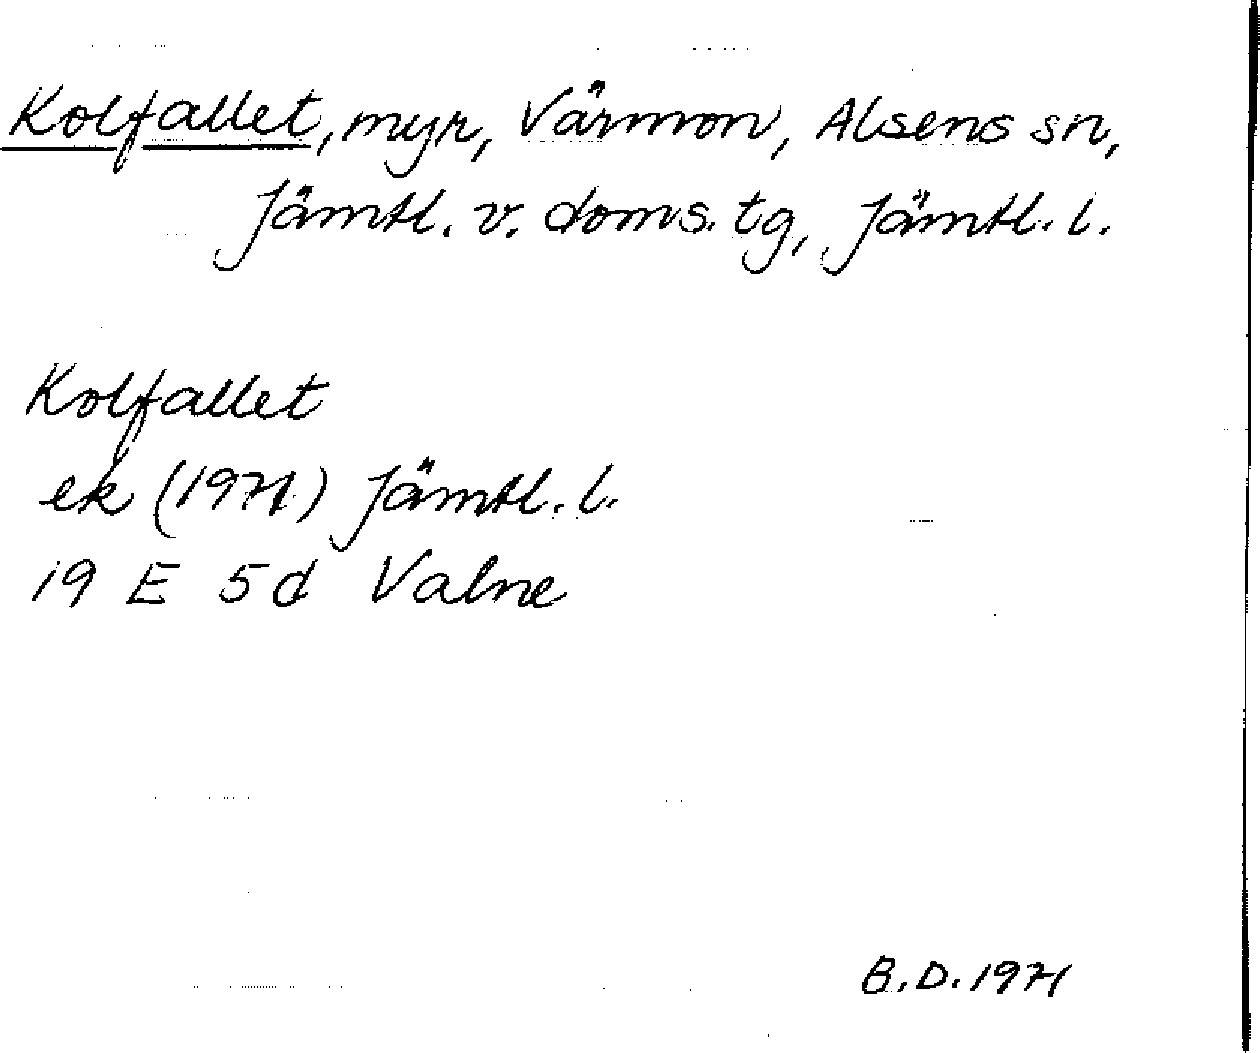 Kolfallet, myr, Värmon, Alsens sn,
Jämtl. v. doms. tg, Jämtl. l.
Kolfallet
ek (1971) Jämtl. l.
19 E 5d Valne
B.D. 1971